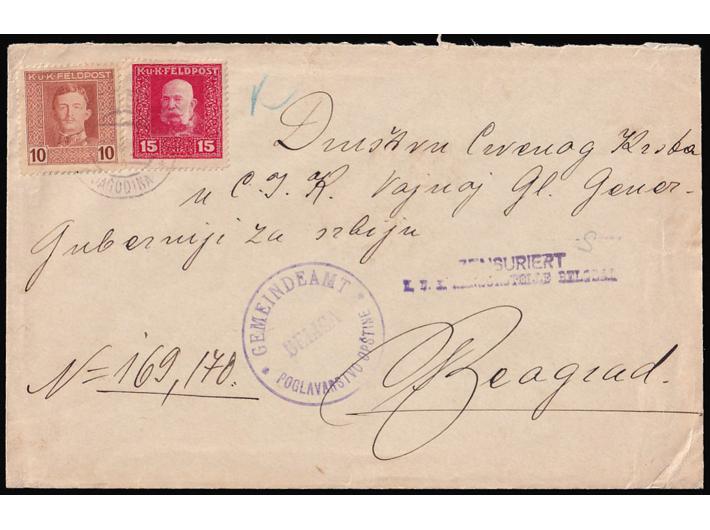 K.u.K. FELDPOST
10 10
K.u.K. FELDPOST
15 15
JAGODINA
Društvu Crvenog Krsta
u C. I. K. Vojnoj Gl. Gener-
Guberniji za srbiju
ZENSURIERT
K. U. K. ZENSURSTELLE BELGRAD
GEMEINDEAMT
POGLAVARSTVO OPŠTINE
N= 169,170.
Beograd.